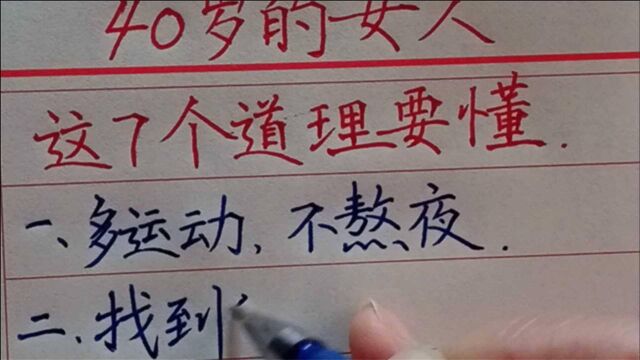 40岁的女人
这7个道理要懂.
一、多运动,不熬夜.
二、找到